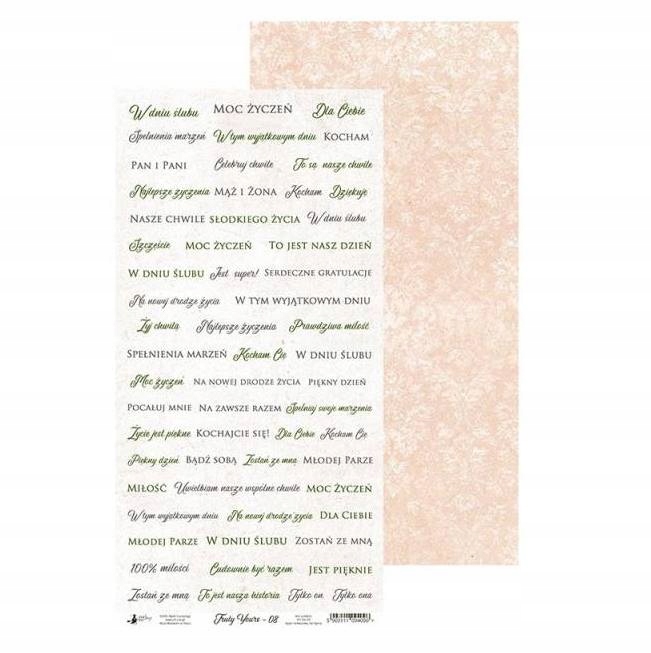 W dniu ślubu MOC ŻYCZEŃ Dla Ciebie
Spełnienia marzeń W tym wyjątkowym dniu KOCHAM
PAN I PANI Celebruj chwile To są nasze chwile
Najlepsze życzenia MĄŻ I ŻONA Kocham Dziękuję
NASZE CHWILE SŁODKIEGO ŻYCIA W dniu ślubu
Szczęście MOC ŻYCZEŃ TO JEST NASZ DZIEŃ
W DNIU ŚLUBU Jest super! SERDECZNE GRATULACJE
Na nowej drodze życia W TYM WYJĄTKOWYM DNIU
Żyj chwilą Najlepsze życzenia Prawdziwa miłość
SPEŁNIENIA MARZEŃ Kocham Cię W DNIU ŚLUBU
Moc życzeń NA NOWEJ DRODZE ŻYCIA PIĘKNY DZIEŃ
POCAŁUJ MNIE NA ZAWSZE RAZEM Spełniaj swoje marzenia
Życie jest piękne KOCHAJCIE SIĘ! Dla Ciebie Kocham Cię
Piękny dzień BĄDŹ SOBĄ Zostań ze mną MŁODEJ PARZE
MIŁOŚĆ Uwielbiam nasze wspólne chwile MOC ŻYCZEŃ
W tym wyjątkowym dniu Na nowej drodze życia DLA CIEBIE
MŁODEJ PARZE W DNIU ŚLUBU ZOSTAŃ ZE MNĄ
100% miłości Cudownie być razem JEST PIĘKNIE
Zostań ze mną To jest nasza historia Tylko on Tylko ona
Truly Yours - 08